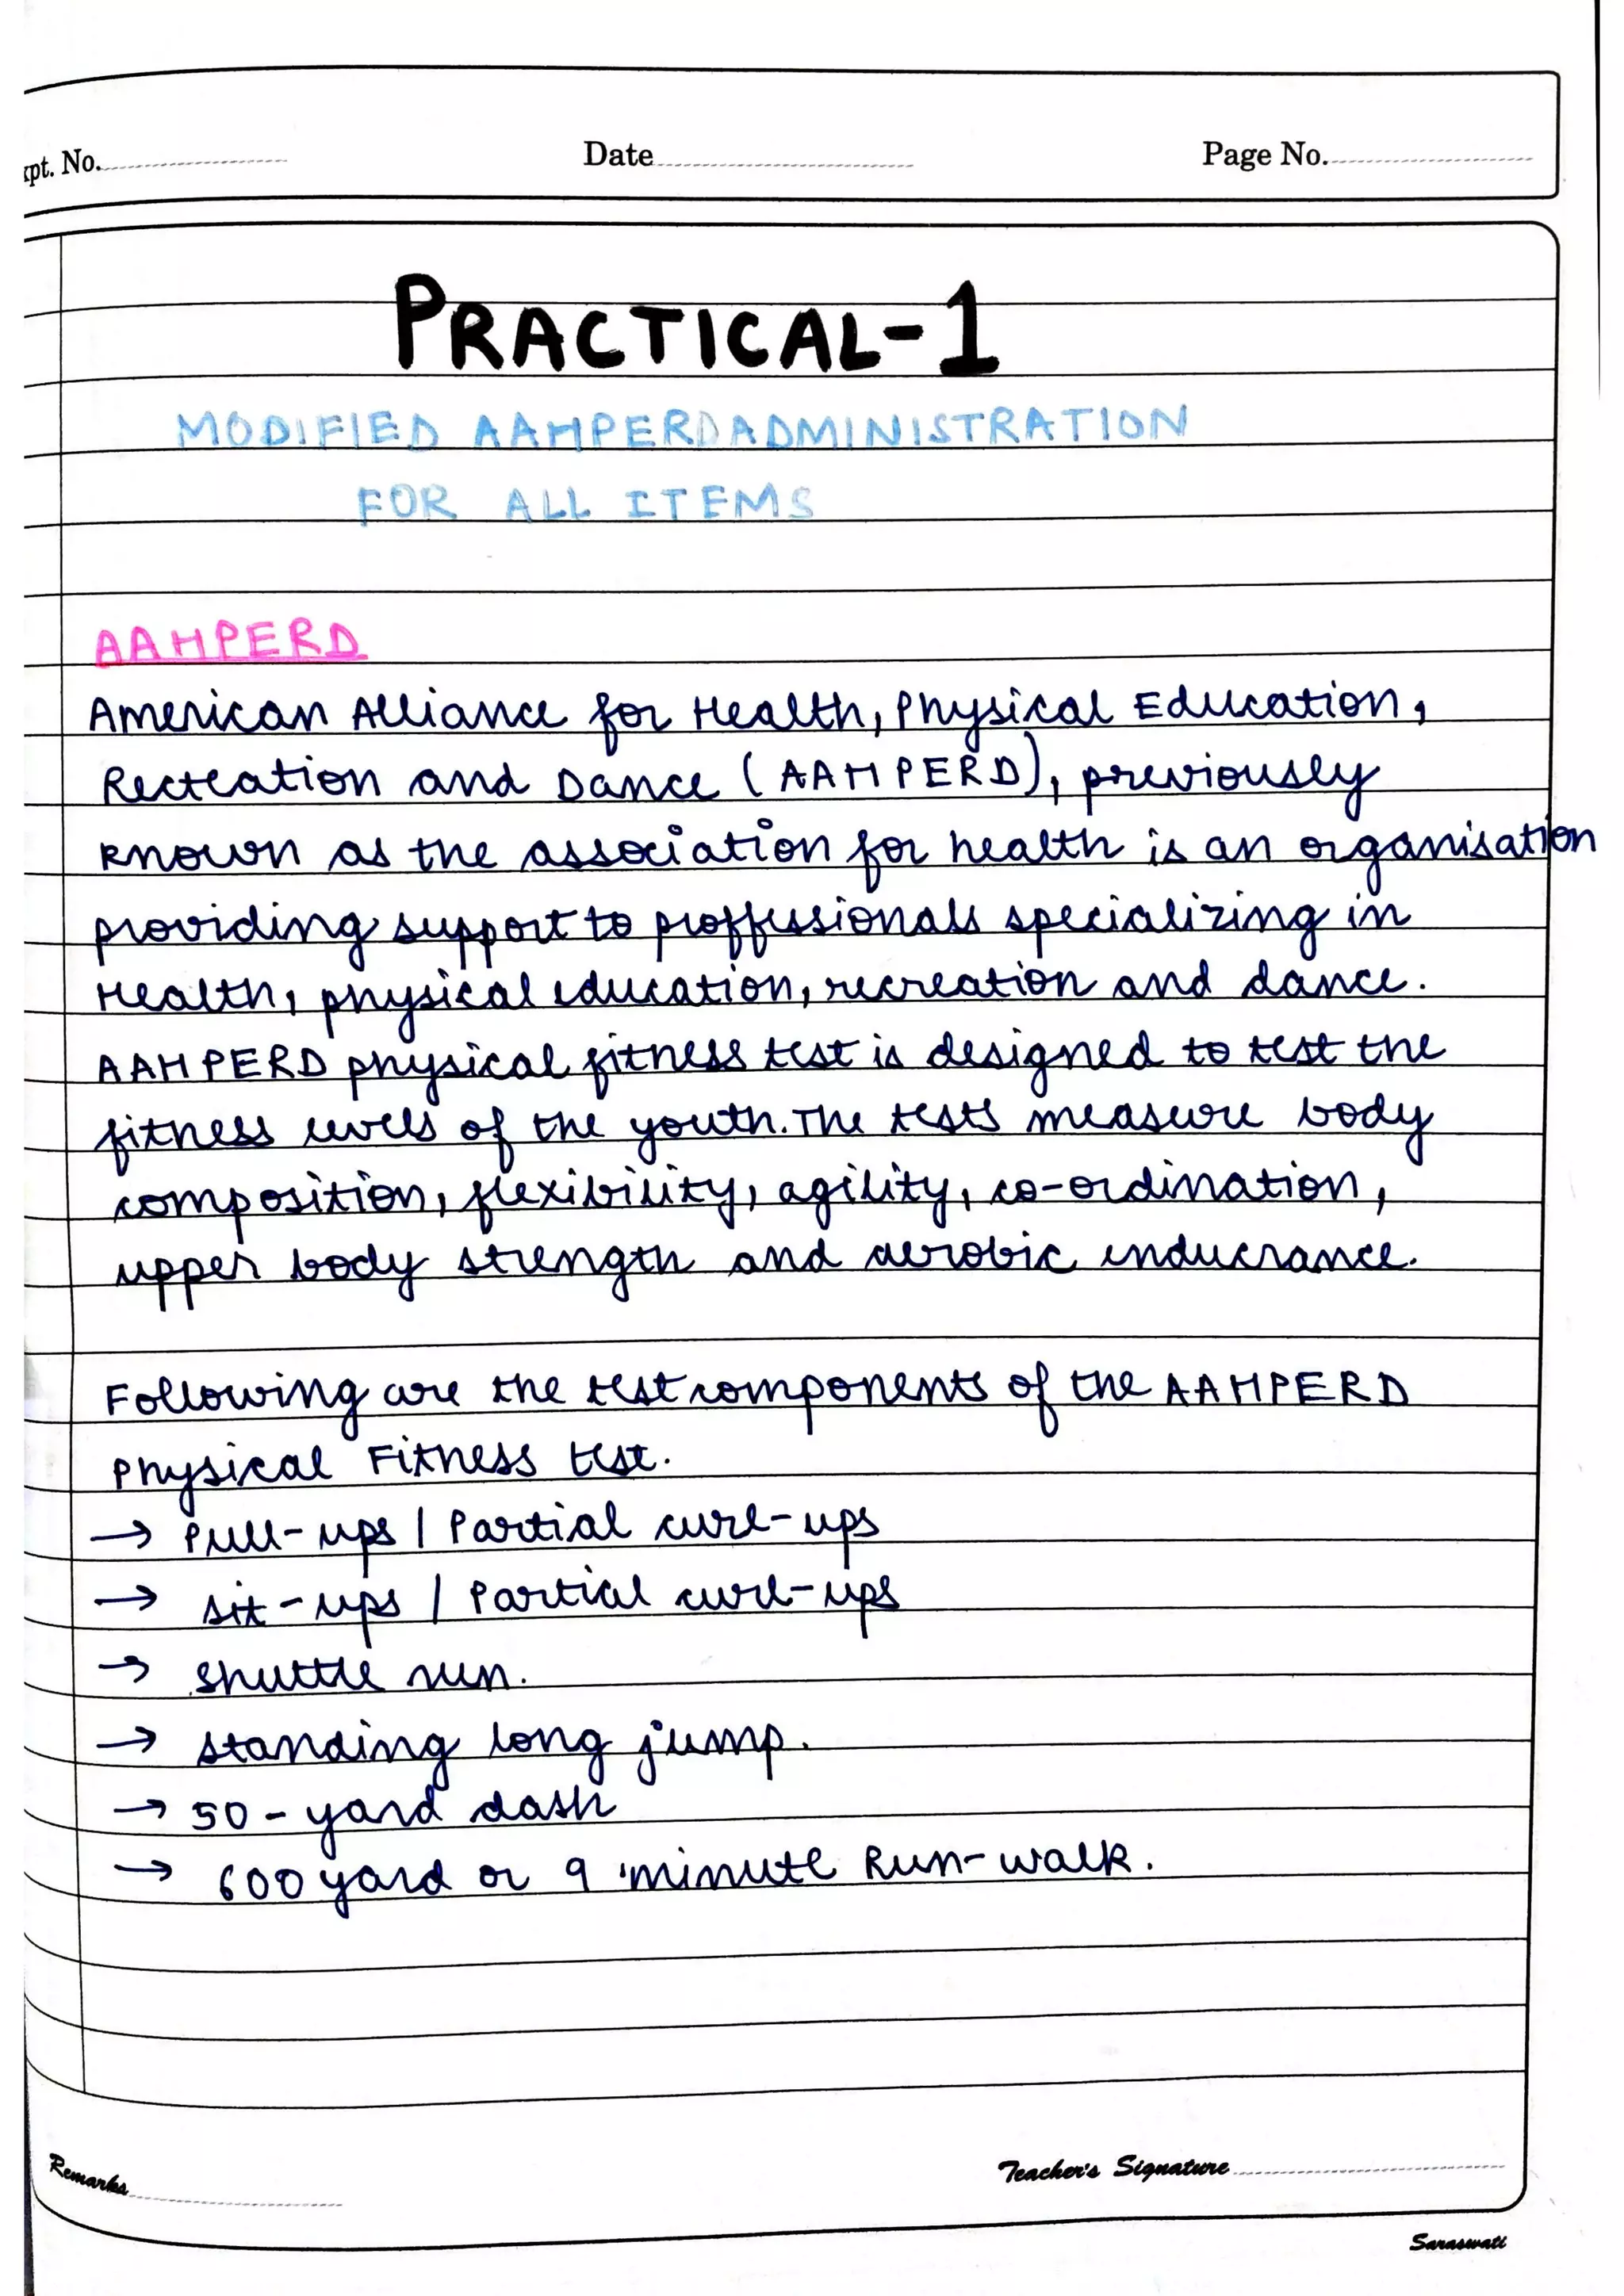 xpt. No. Date Page No.
PRACTICAL-1
MODIFIED AAHPERD ADMINISTRATION
FOR ALL ITEMS
AAHPERD
American Alliance for Health, Physical Education,
Recreation and Dance (AAHPERD), previously
known as the association for health is an organisation
providing support to proffessionals specializing in
Health, physical education, recreation and dance.
AAHPERD physical fitness test is designed to test the
fitness levels of the youth. The tests measure body
composition, flexibility, agility, co-ordination,
upper body strength and aerobic enducrance.
Following are the test components of the AAHPERD
Physical Fitness test.
→ Pull-ups / Partial curl-ups
→ Sit-ups / Partial curl-ups
→ Shuttle run.
→ Standing long jump.
→ 50-yard dash
→ 600 yard or 9 minute Run-walk.
Remarks Teacher's Signature
Saraswati